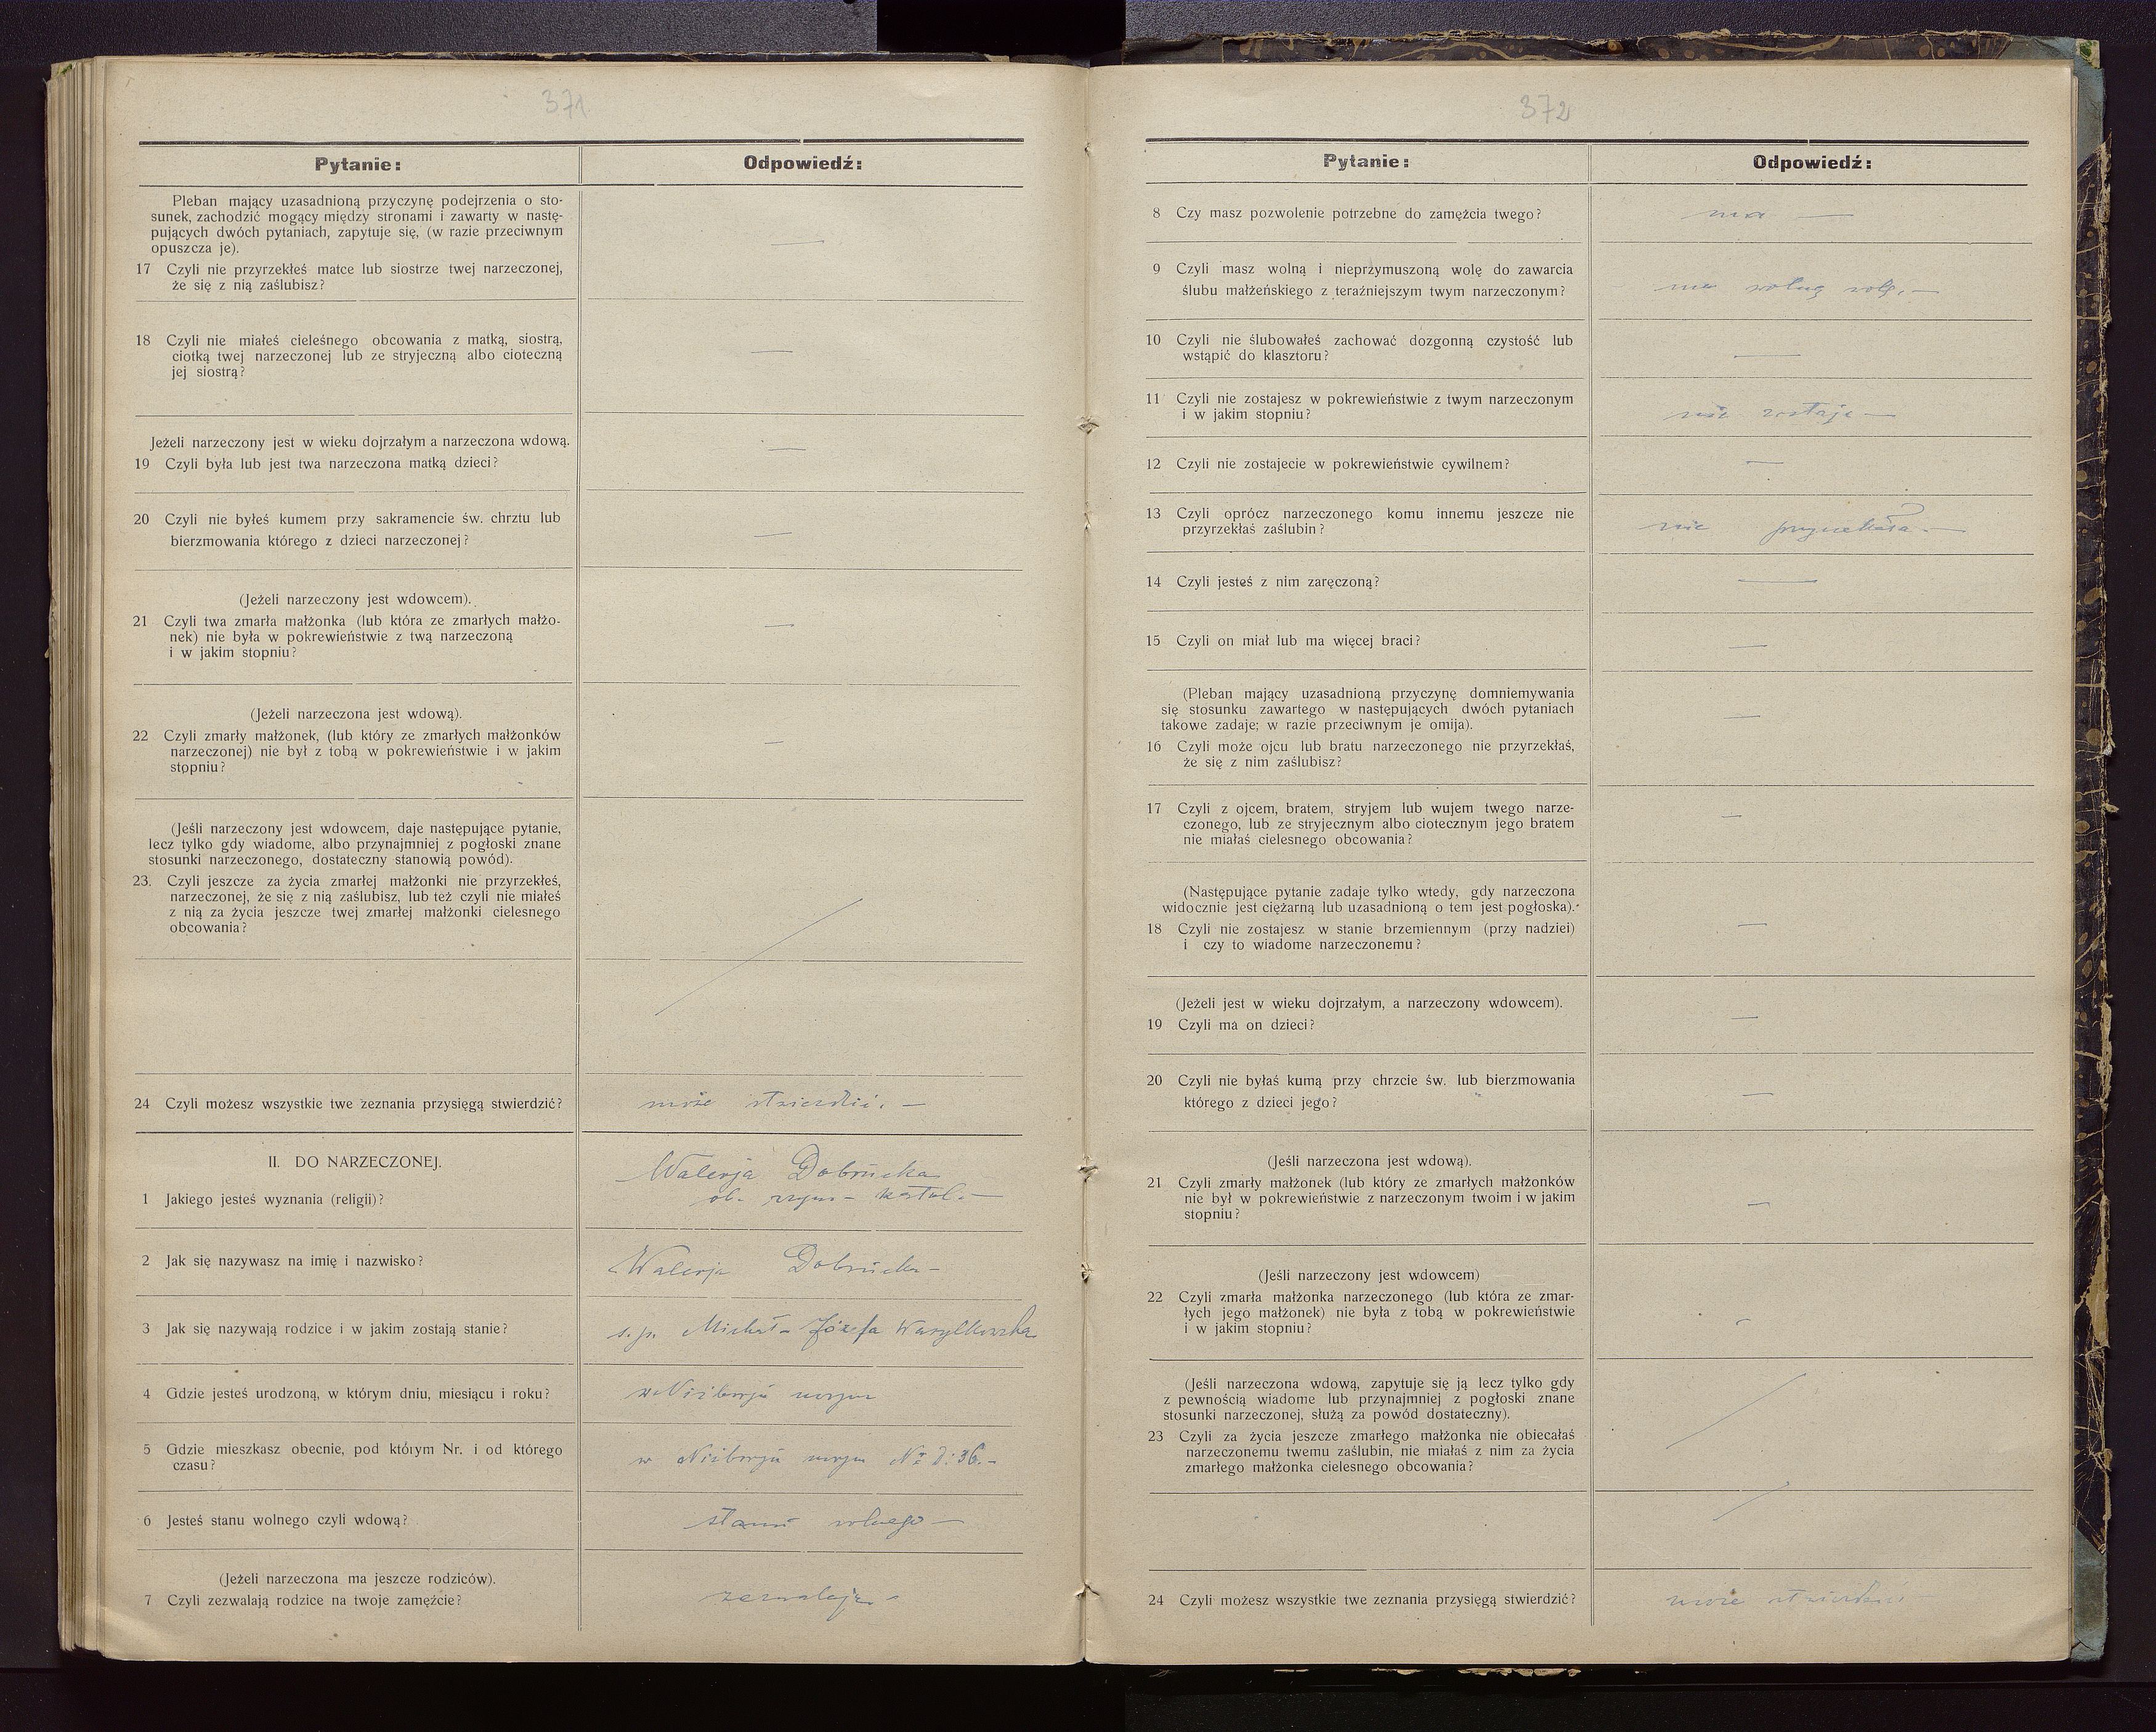 371
Pytanie:
Odpowiedź:
Pleban mający uzasadnioną przyczynę podejrzenia o sto-
sunek, zachodzić mogący między stronami i zawarty w nastę-
pujących dwóch pytaniach, zapytuje się, (w razie przeciwnym
opuszcza je).
17 Czyli nie przyrzekłeś matce lub siostrze twej narzeczonej,
że się z nią zaślubisz?
—
18 Czyli nie miałeś cieleśnego obcowania z matką, siostrą,
ciotką twej narzeczonej lub ze stryjeczną albo cioteczną
jej siostrą?
—
Jeżeli narzeczony jest w wieku dojrzałym a narzeczona wdową.
19 Czyli była lub jest twa narzeczona matką dzieci?
—
20 Czyli nie byłeś kumem przy sakramencie św. chrztu lub
bierzmowania którego z dzieci narzeczonej?
—
(Jeżeli narzeczony jest wdowcem).
21 Czyli twa zmarła małżonka (lub która ze zmarłych małżo-
nek) nie była w pokrewieństwie z twą narzeczoną
i w jakim stopniu?
—
(Jeżeli narzeczona jest wdową).
22 Czyli zmarły małżonek, (lub który ze zmarłych małżonków
narzeczonej) nie był z tobą w pokrewieństwie i w jakim
stopniu?
—
(Jeśli narzeczony jest wdowcem, daje następujące pytanie,
lecz tylko gdy wiadome, albo przynajmniej z pogłoski znane
stosunki narzeczonego, dostateczny stanowią powód).
23. Czyli jeszcze za życia zmarłej małżonki nie przyrzekłeś,
narzeczonej, że się z nią zaślubisz, lub też czyli nie miałeś
z nią za życia jeszcze twej zmarłej małżonki cielesnego
obcowania?
24 Czyli możesz wszystkie twe zeznania przysięgą stwierdzić?
może stwierdzić. —
II. DO NARZECZONEJ.
Walerja Dobrucka
1 Jakiego jesteś wyznania (religii)?
ob. rzym - katol. —
2 Jak się nazywasz na imię i nazwisko?
Walerja Dobrucka —
3 Jak się nazywają rodzice i w jakim zostają stanie?
s. p. Michał - Józefa Wasylkowska
4 Gdzie jesteś urodzoną, w którym dniu, miesiącu i roku?
w Niżborgu nowym
5 Gdzie mieszkasz obecnie, pod którym Nr. i od którego
czasu?
w Niżborgu nowym Nr d: 36. —
6 Jesteś stanu wolnego czyli wdową?
stanu wolnego —
(Jeżeli narzeczona ma jeszcze rodziców).
7 Czyli zezwalają rodzice na twoje zamężcie?
zezwalają —
372
Pytanie:
Odpowiedź:
8 Czy masz pozwolenie potrzebne do zamężcia twego?
ma —
9 Czyli masz wolną i nieprzymuszoną wolę do zawarcia
ślubu małżeńskiego z teraźniejszym twym narzeczonym?
ma wolną wolę. —
10 Czyli nie ślubowałeś zachować dozgonną czystość lub
wstąpić do klasztoru?
—
11 Czyli nie zostajesz w pokrewieństwie z twym narzeczonym
i w jakim stopniu?
nie zostaje —
12 Czyli nie zostajecie w pokrewieństwie cywilnem?
—
13 Czyli oprócz narzeczonego komu innemu jeszcze nie
przyrzekłaś zaślubin?
nie przyrzekała —
14 Czyli jesteś z nim zaręczoną?
—
15 Czyli on miał lub ma więcej braci?
—
(Pleban mający uzasadnioną przyczynę domniemywania
się stosunku zawartego w następujących dwóch pytaniach
takowe zadaje; w razie przeciwnym je omija).
16 Czyli może ojcu lub bratu narzeczonego nie przyrzekłaś,
że się z nim zaślubisz?
—
17 Czyli z ojcem, bratem, stryjem lub wujem twego narze-
czonego, lub ze stryjecznym albo ciotecznym jego bratem
nie miałaś cielesnego obcowania?
—
(Następujące pytanie zadaje tylko wtedy, gdy narzeczona
widocznie jest ciężarną lub uzasadnioną o tem jest pogłoska).
18 Czyli nie zostajesz w stanie brzemiennym (przy nadziei)
i czy to wiadome narzeczonemu?
—
(Jeżeli jest w wieku dojrzałym, a narzeczony wdowcem).
19 Czyli ma on dzieci?
—
20 Czyli nie byłaś kumą przy chrzcie św. lub bierzmowania
którego z dzieci jego?
—
(Jeśli narzeczona jest wdową).
21 Czyli zmarły małżonek (lub który ze zmarłych małżonków
nie był w pokrewieństwie z narzeczonym twoim i w jakim
stopniu?
—
(Jeśli narzeczony jest wdowcem)
22 Czyli zmarła małżonka narzeczonego (lub która ze zmar-
łych jego małżonek) nie była z tobą w pokrewieństwie
i w jakim stopniu?
—
(Jeśli narzeczona wdową, zapytuje się ją lecz tylko gdy
z pewnością wiadome lub przynajmniej z pogłoski znane
stosunki narzeczonej, służą za powód dostateczny).
23 Czyli za życia jeszcze zmarłego małżonka nie obiecałaś
narzeczonemu twemu zaślubin, nie miałaś z nim za życia
zmarłego małżonka cielesnego obcowania?
24 Czyli możesz wszystkie twe zeznania przysięgą stwierdzić?
może stwierdzić